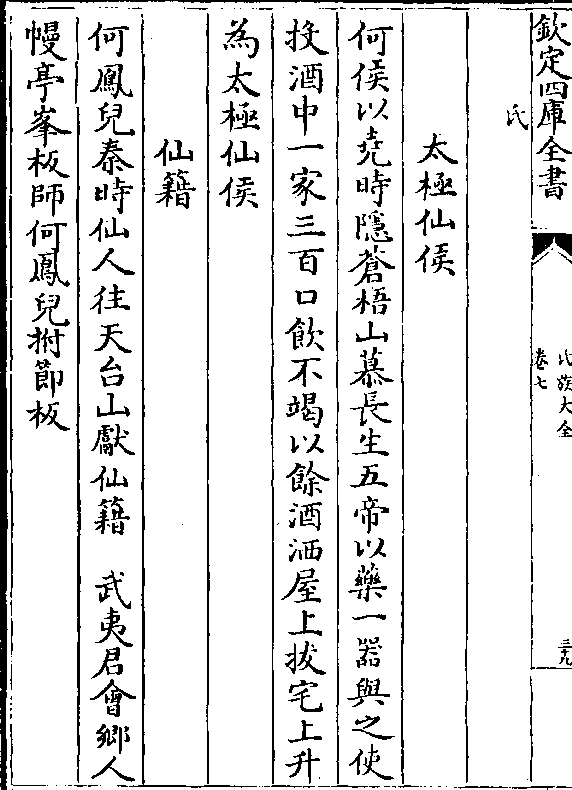 欽定四庫全書
氏族大全
卷七
三九
氏
太極仙侯
何侯以堯時隱蒼梧山慕長生五帝以藥一器與之使
投酒中一家三百口飲不竭以餘酒洒屋上拔宅上升
為太極仙侯
仙籍
何鳳兒秦時仙人往天台山獻仙籍　武夷君會鄉人
幔亭峯板師何鳳兒拊節板